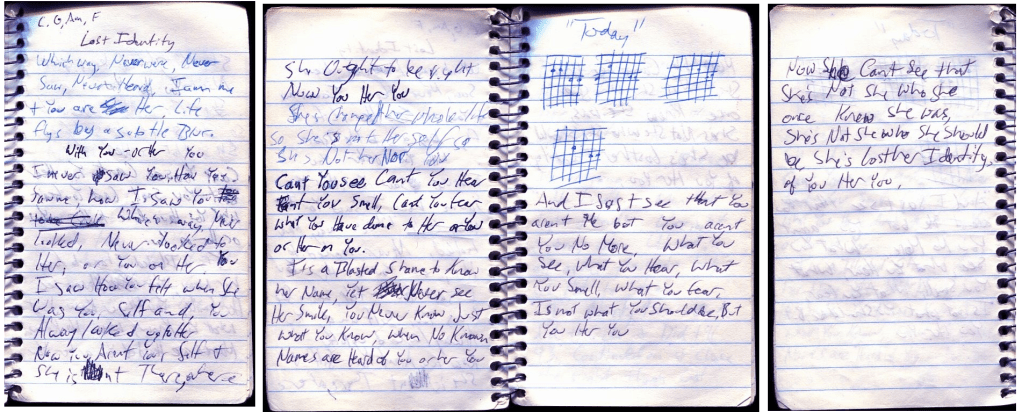 C, G, Am, F
Lost Identity
Which way, Neverwere, Never
Saw, Never Heard, I am me
+ You are Her, Life
flys by a subtle Blur.
With You - or Her You
I never saw You, How You
Saw me, how I saw You
Where way, Her
looked, Never looked to
Her, or You or Her, You
I saw How You felt when She
Was You, Self and, You
Always looked up to Her
Now You Aint Your Self +
She is nt There, where
She Ought to be right
Now You Her You
She's changed Her whole life
so She's not Her self so
She's Not her Now, You
Cant You see Cant You Hear
Cant You Smell, Cant You fear
what You Have done to Her or You
or Her on You.
It is a Blasted Shame to Know
her Name, Yet Never see
Her Smile, You Never Know Just
What You Know, when No Known
Names are Heard of You or her You
"Today"
And I Just see that You
arent Me but You arent
You No More, What You
See, What You Hear, What
You Smell, What You fear,
Is not what You Should be, But
You Her You
Now She Cant See that
She's Not She Who She
once Knew She was,
She's Not She who She Should
be She's lost her Identity,
of You Her You,